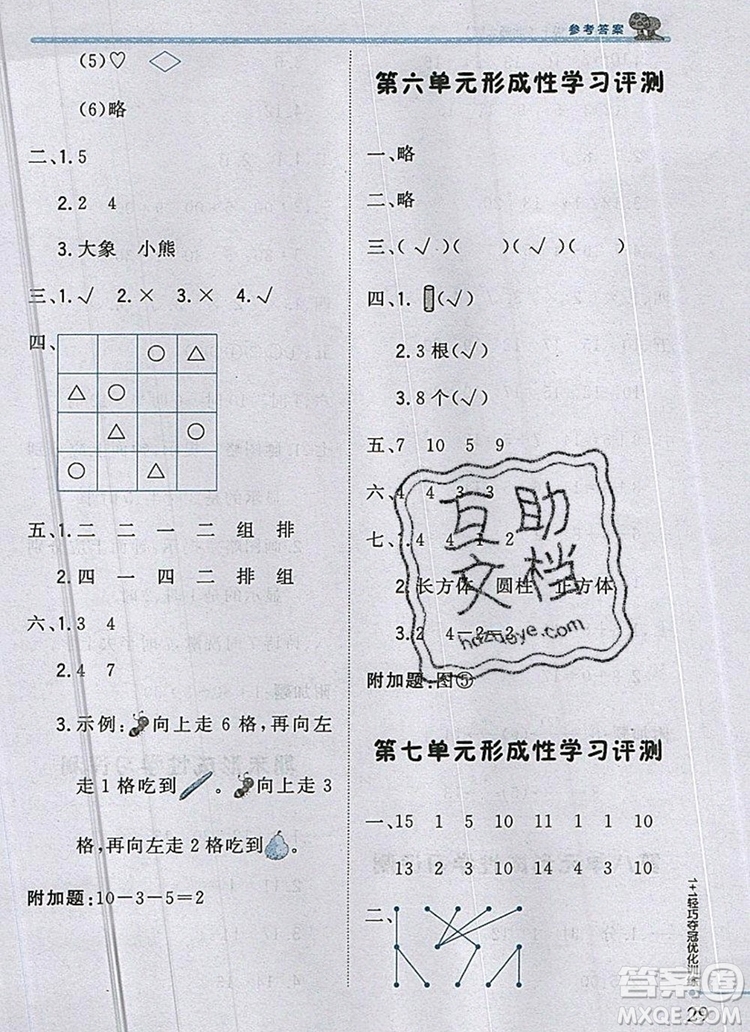 参考答案
(5)♡ ◇
(6)略
二、1.5
2.2 4
3.大象 小熊
三、1.√ 2.× 3.× 4.√
四、
○ △
△ ○
△ ○
○ △
五、1.二 二 一 二 组 排
2.四 一 四 二 排 组
六、1.3 4
2.4 7
3.示例:向上走6格,再向左
走1格吃到。向上走3
格,再向左走2格吃到。
附加题:10-3-5=2
第六单元形成性学习评测
一、略
二、略
三、(√)( )( )(√)
四、1.(√)
2.3根(√)
3.8个(√)
五、7 10 5 9
六、4 4 3 3
七、1.4 4 1 2
2.长方体 圆柱 正方体
3.2 4-2=2
附加题:图⑤
互助
文档
hdzuoye.com
第七单元形成性学习评测
一、15 1 5 10 11 1 1 10
13 10 3 10 8 18 10 10
二、
1+1轻巧夺冠优化训练
29
答案圈
MXQE.COM